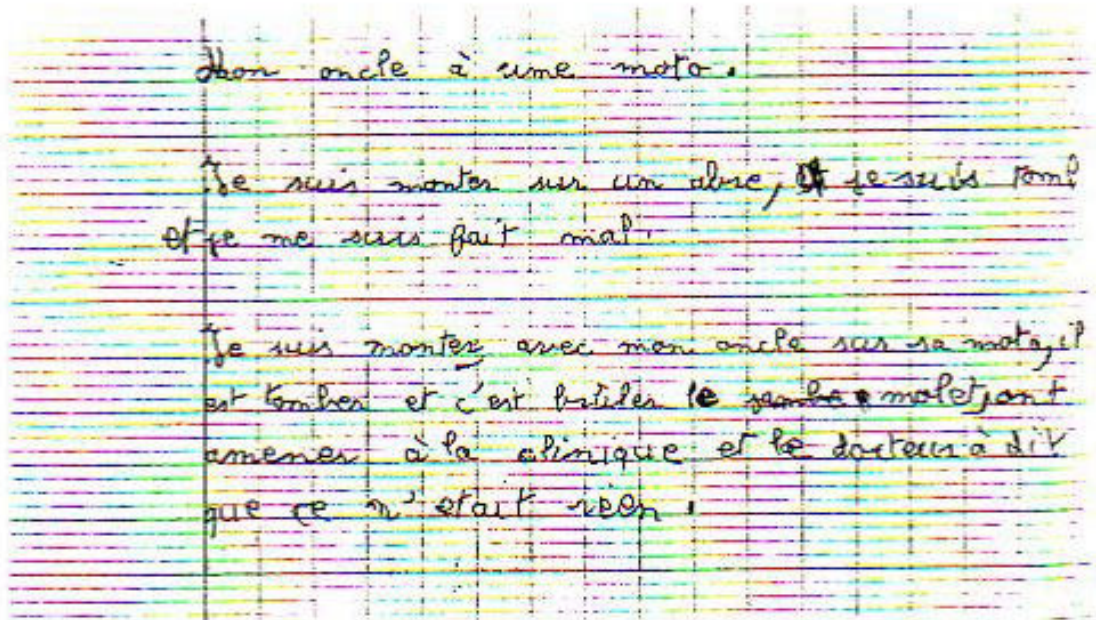 Mon oncle à une moto.
Je suis monter sur un abre, je suis tomb
et je me suis fait mal.
Je suis monter avec mon oncle sur sa moto, il
est tomber et c'est brûler le molet,
amener à la clinique et le docteur à dit
que ce n'etait rien.